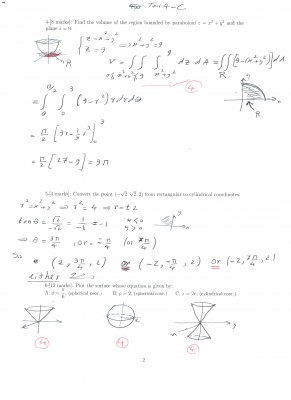 Test 4-C
4-[8 marks] Find the volume of the region bounded by paraboloid z = x² + y² and the
plane z = 9.
z = x² + y²
z = 9
⇒ x² + y² = 9
V = ∫∫ ∫ dz dA = ∫∫ [9-(x²+y²)] dA
R
④
= ∫ ∫ (9-r²) r dr dθ
π/2 0 3
R
= π/2 [ ]
= π/2 [27-9] = 9π
5-[4 marks] Convert the point (-√2, √2, 2) from rectangular to cylindrical coordinates.
r² = x² + y² ⇒ r² = 4 ⇒ r = ±2
tanθ = √2/-√2 = = -1
x < 0
y > 0
⇒ θ = 3π/4 , or = -π/4 (or 7π/4)
So (2, 3π/4, 2) or (-2, -π/4, 2) or (-2, 7π/4, 2)
either
6-[12 marks] Plot the surface whose equation is given by:
(spherical coor.) B. ρ = 2, (spherical coor.) C. z = 2r, (cylindrical coor.)
④ ④ ④
2